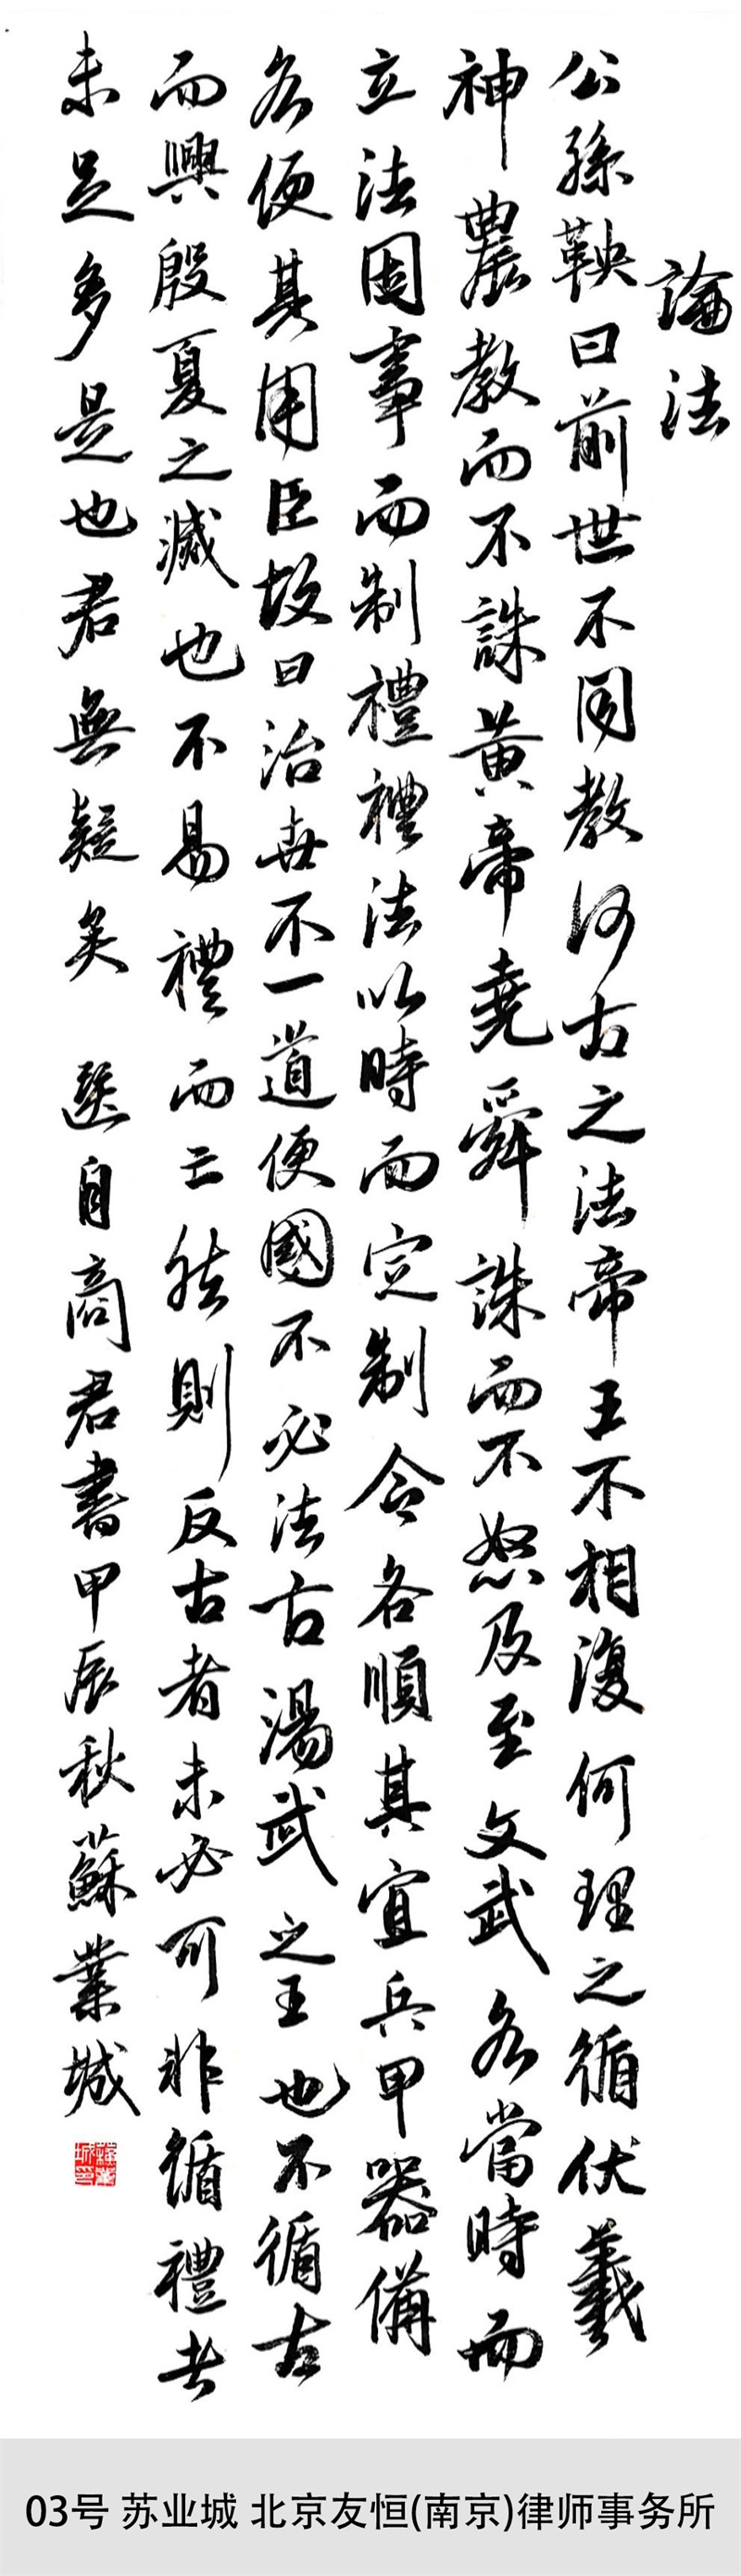 論法
公孫鞅曰前世不同教何古之法帝王不相復何理之循伏羲
神農教而不誅黄帝堯舜誅而不怒及至文武各當時而
立法因事而制禮禮法以時而定制令各順其宜兵甲器備
各便其用臣故曰治世不一道便國不必法古湯武之王也不循古
而興殷夏之滅也不易禮而亡然則反古者未必可非循禮者
未足多是也君無疑矣 選自商君書甲辰秋蘇業城
03号 苏业城 北京友恒(南京)律师事务所